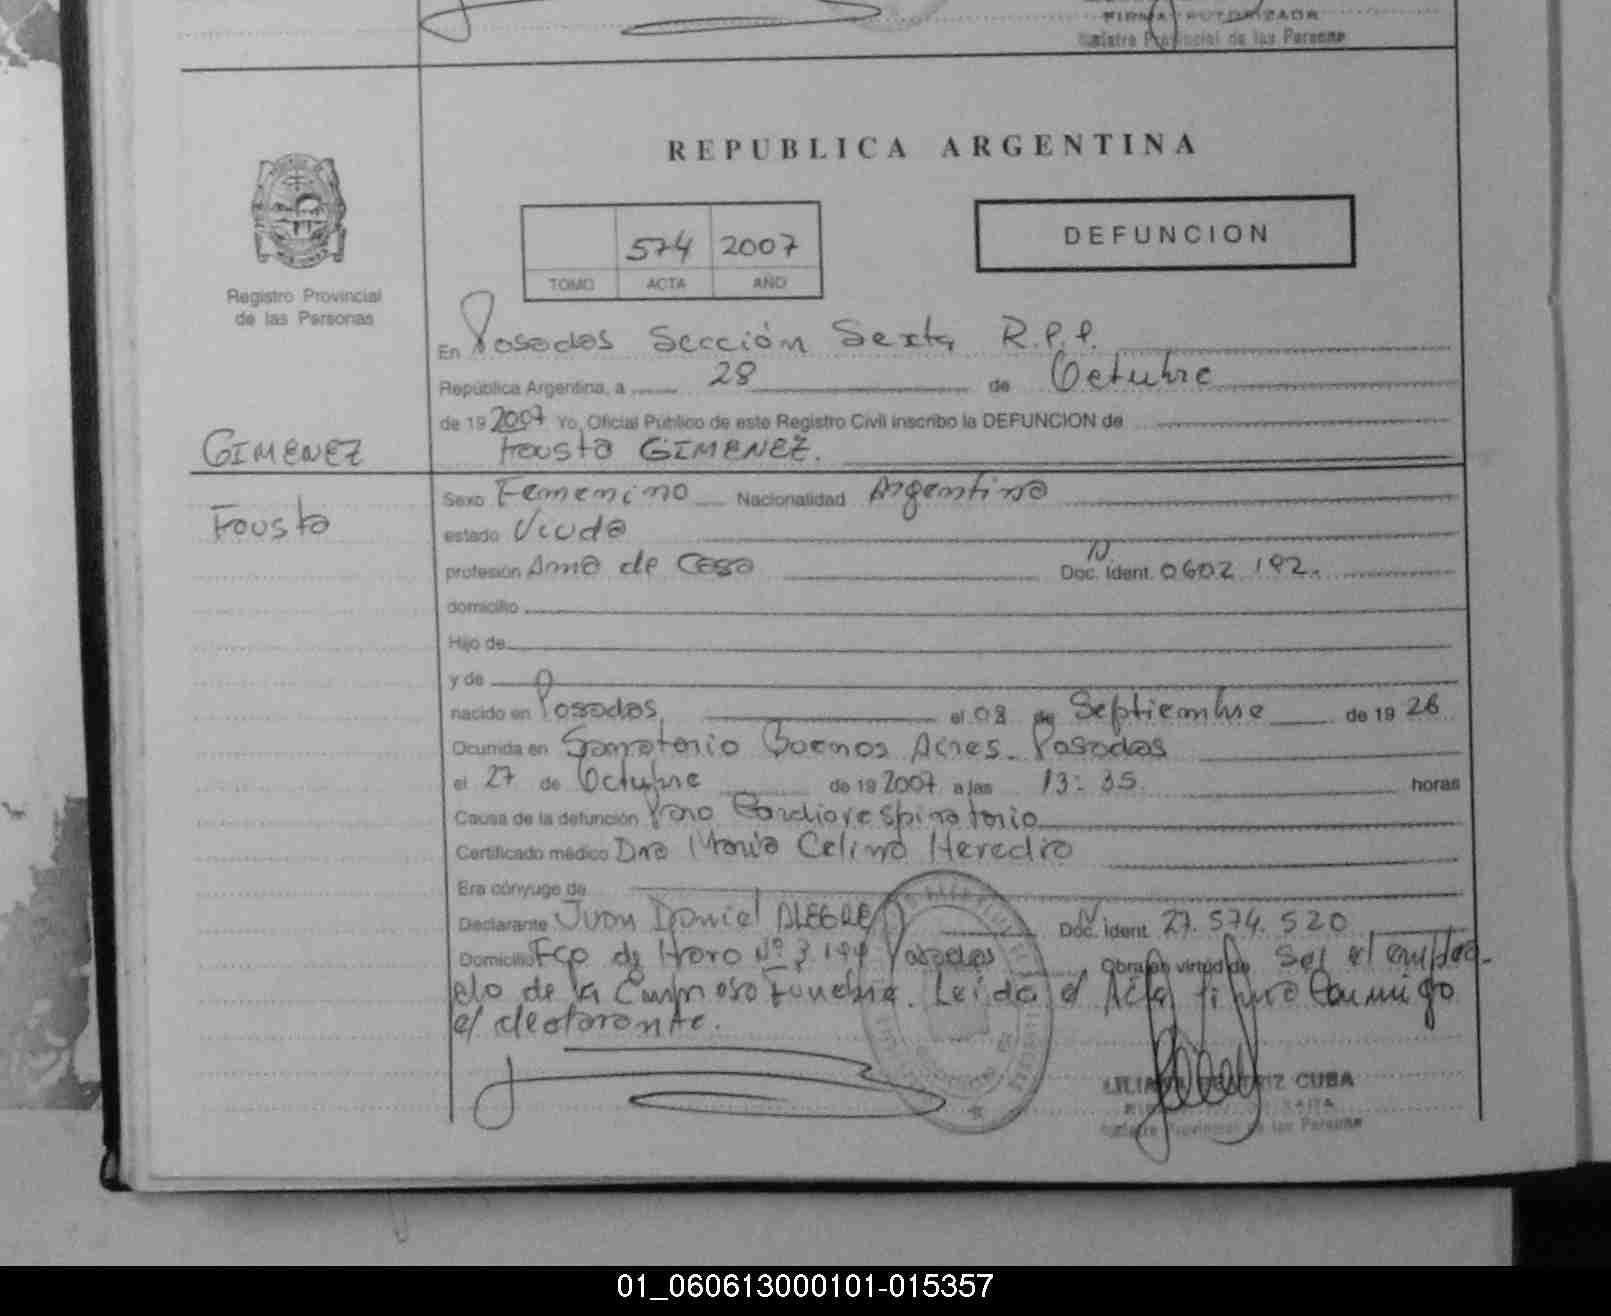 FIRMA AUTORIZADA
Registro Provincial de las Persona
REPUBLICA ARGENTINA
574 2007
TOMO ACTA AÑO
DEFUNCION
Registro Provincial
de las Personas
En Posadas Sección Sexta R.P.P.
República Argentina, a 28 de Octubre
de 19 2007 Yo, Oficial Público de este Registro Civil inscribo la DEFUNCION de
GIMENEZ
Fausta GIMENEZ.
Fausta
Sexo Femenino Nacionalidad Argentina
estado Viuda
profesión Ama de Casa Doc. Ident. 0602 192.
domicilio
Hijo de
y de
nacido en Posadas, el 08 de Septiembre de 19 26
Ocurrida en Sanatorio Buenos Aires - Posadas
el 27 de Octubre de 19 2007 a las 13:35 horas
Causa de la defunción Paro Cardiorespiratorio
Certificado médico Dra Maria Celina Heredia
Era cónyuge de
Declarante Juan Daniel ALEGRE Doc. Ident. 27.574.520
Domicilio Fco de Haro Nº 3.194 Posadas Obra en virtud de Ser el emplea-
do de la Empresa Funebre. Leida el Acta firma conmigo
el declarante.
LILIANA BEATRIZ CUBA
Registro Provincial de las Persona
01_060613000101-015357